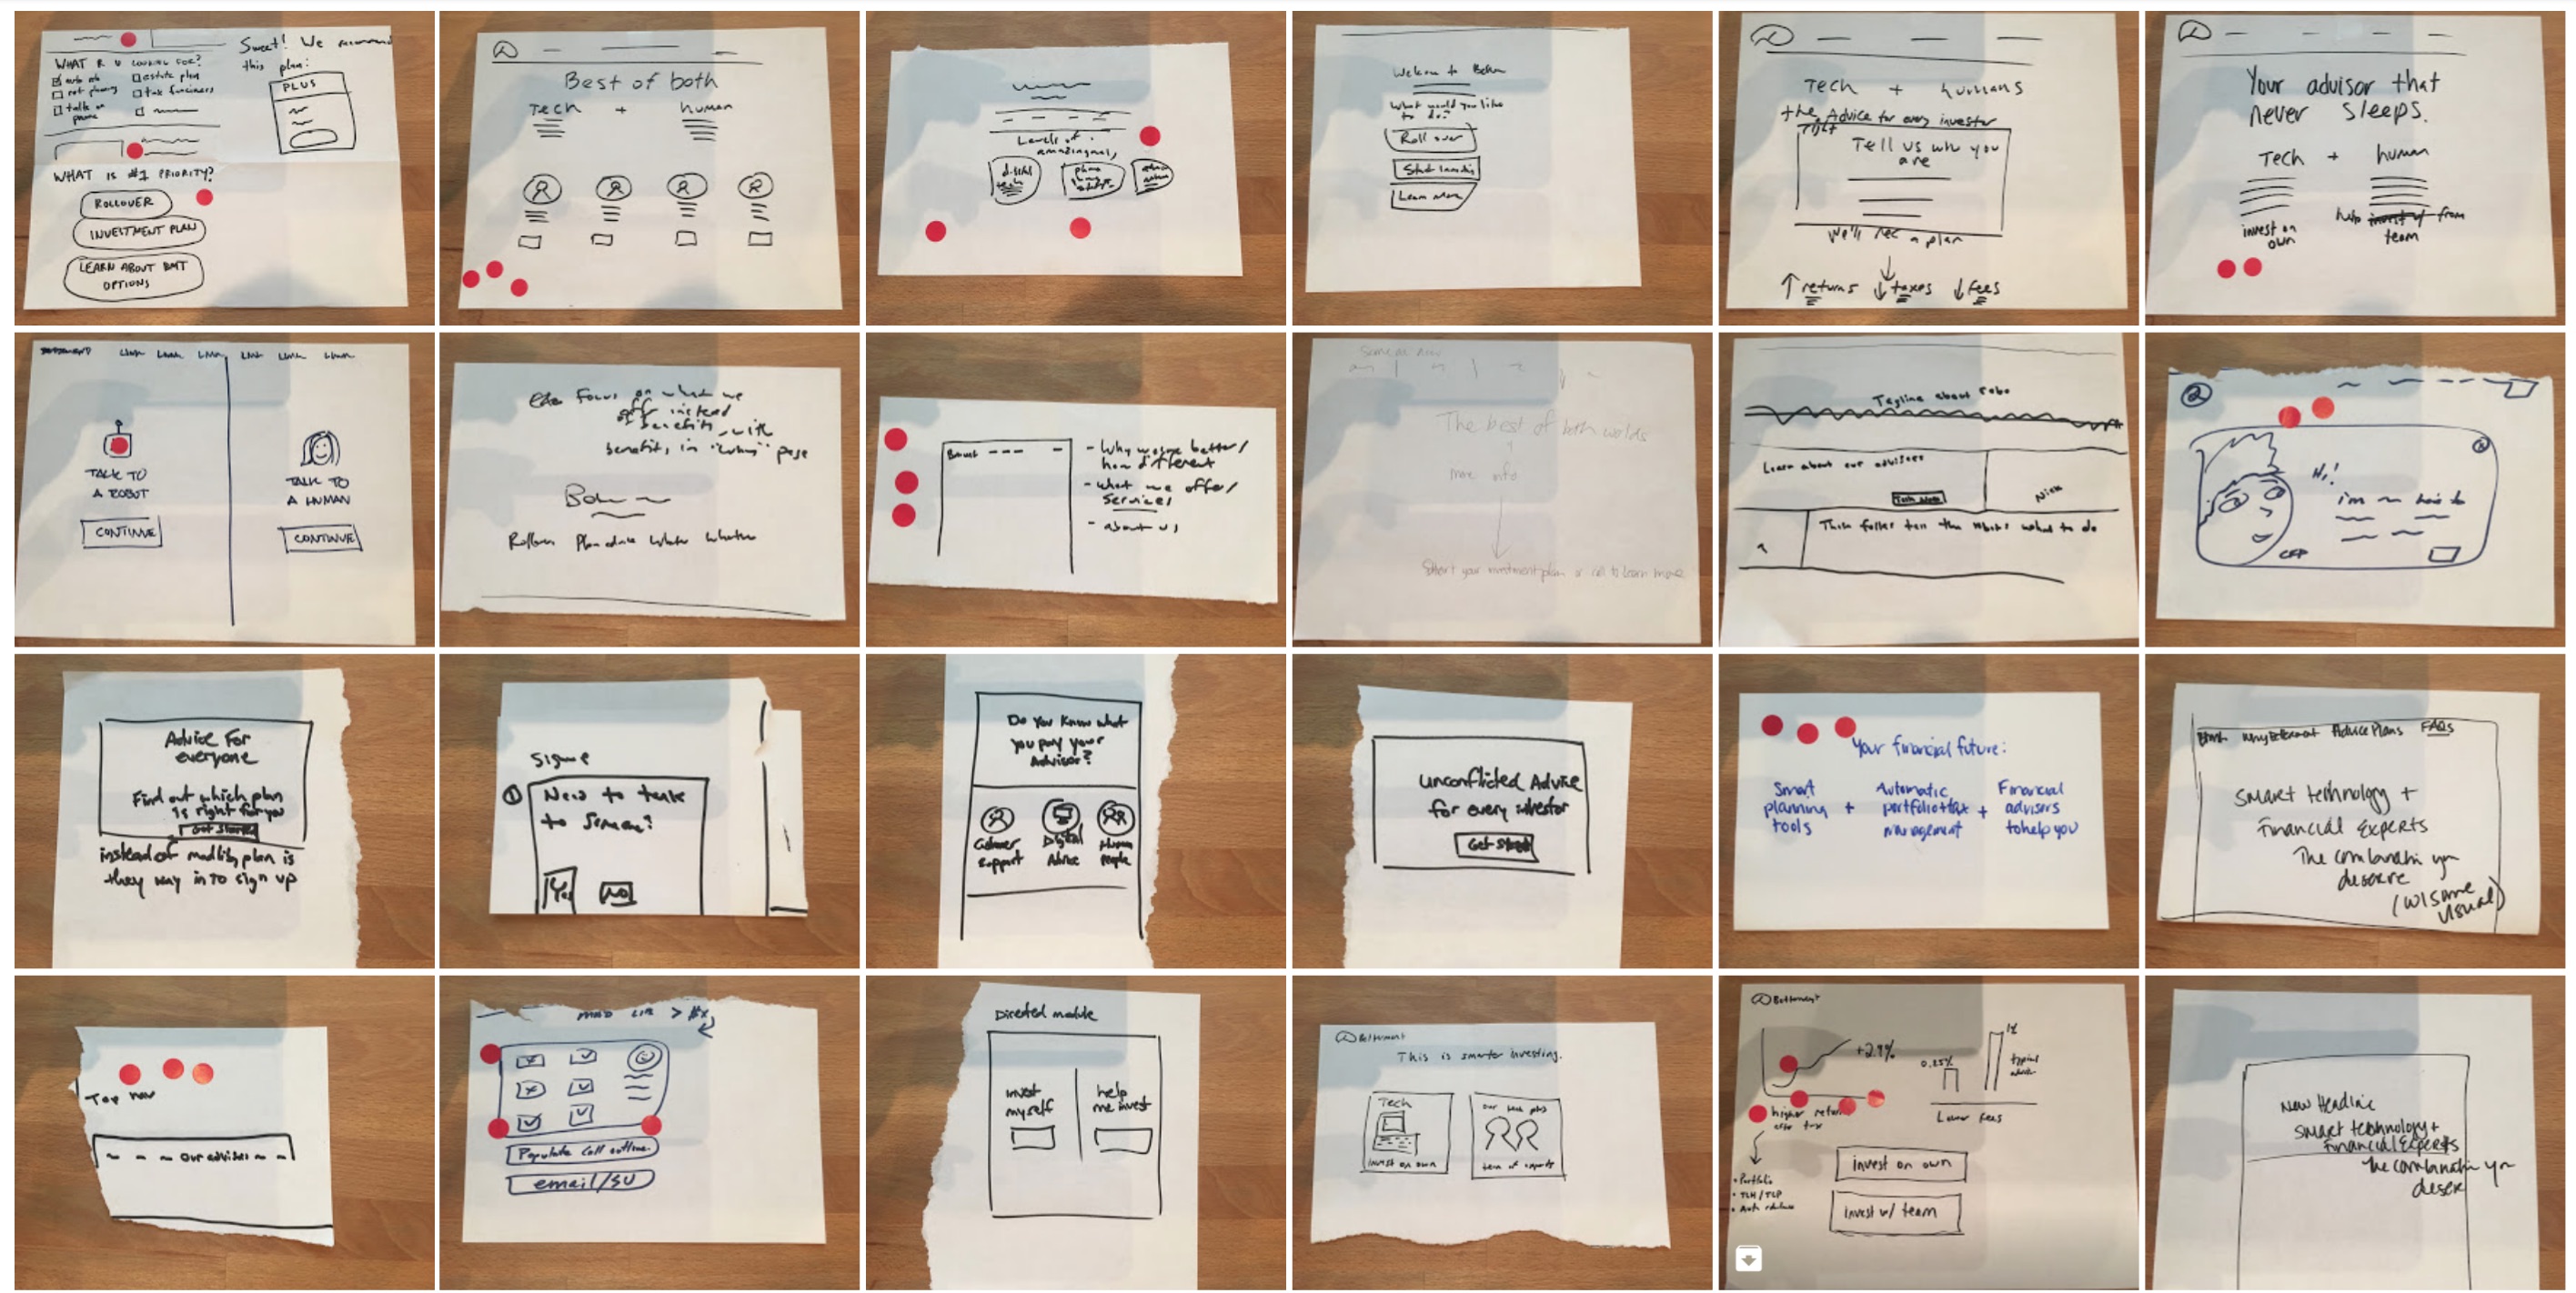 WHAT R U LOOKING FOR?
estate plan
talk on
phone
WHAT IS #1 PRIORITY?
ROLLOVER
INVESTMENT PLAN
LEARN ABOUT BMT
OPTIONS
Sweet! We recommend
this plan:
PLUS
Best of both
Tech + human
Levels of
Welcome to
What would you like
to do?
Roll over
Learn more
Tech + humans
the right Advice for every investor
Tell us who you
are
We'll rec a plan
↑ returns ↓ taxes ↓ fees
Your advisor that
never sleeps.
Tech + human
invest on
own
help from
team
TALK TO
A ROBOT
CONTINUE
TALK TO
A HUMAN
CONTINUE
Focus on what we
offr instead
of benefits, with
benefits in "why" page
- Why we're better/
how different
- what we offer/
services
- about us
The best of both worlds
more info
Select your investment plan or call to learn more
Tagline about robo
Learn about our advisors
Nick
what to do
Hi!
i'm
CFP
Advice For
everyone
Find out which plan
is right for you
Get Started
instead of madlib, plan is
they way in to sign up
Need to talk
to Someone?
Yes NO
Do you know what
you pay your
Advisor?
Customer
support
Digital
Advice
Human
People
unconflicted Advice
for every investor
Get Started
Your financial future:
Smart
planning
tools
+
Automatic
portfolio + tax
management
+
Financial
advisors
to help you
Why Betterment Advice Plans FAQs
smart technology +
Financial Experts
The combination you
deserve
(w/ some
visual)
Top nav
our advisors
MAD LIB >
Populate call outline
email/SU
Directed module
invest
myself
help
me invest
Betterment
This is smarter investing.
Tech
invest on own
team of experts
Betterment
+2.9%
0.25%
typical
Lower fees
higher returns
• Portfolio
• TLH/TCP
invest on own
invest w/ team
New Headline
smart technology +
Financial Experts
The combination you